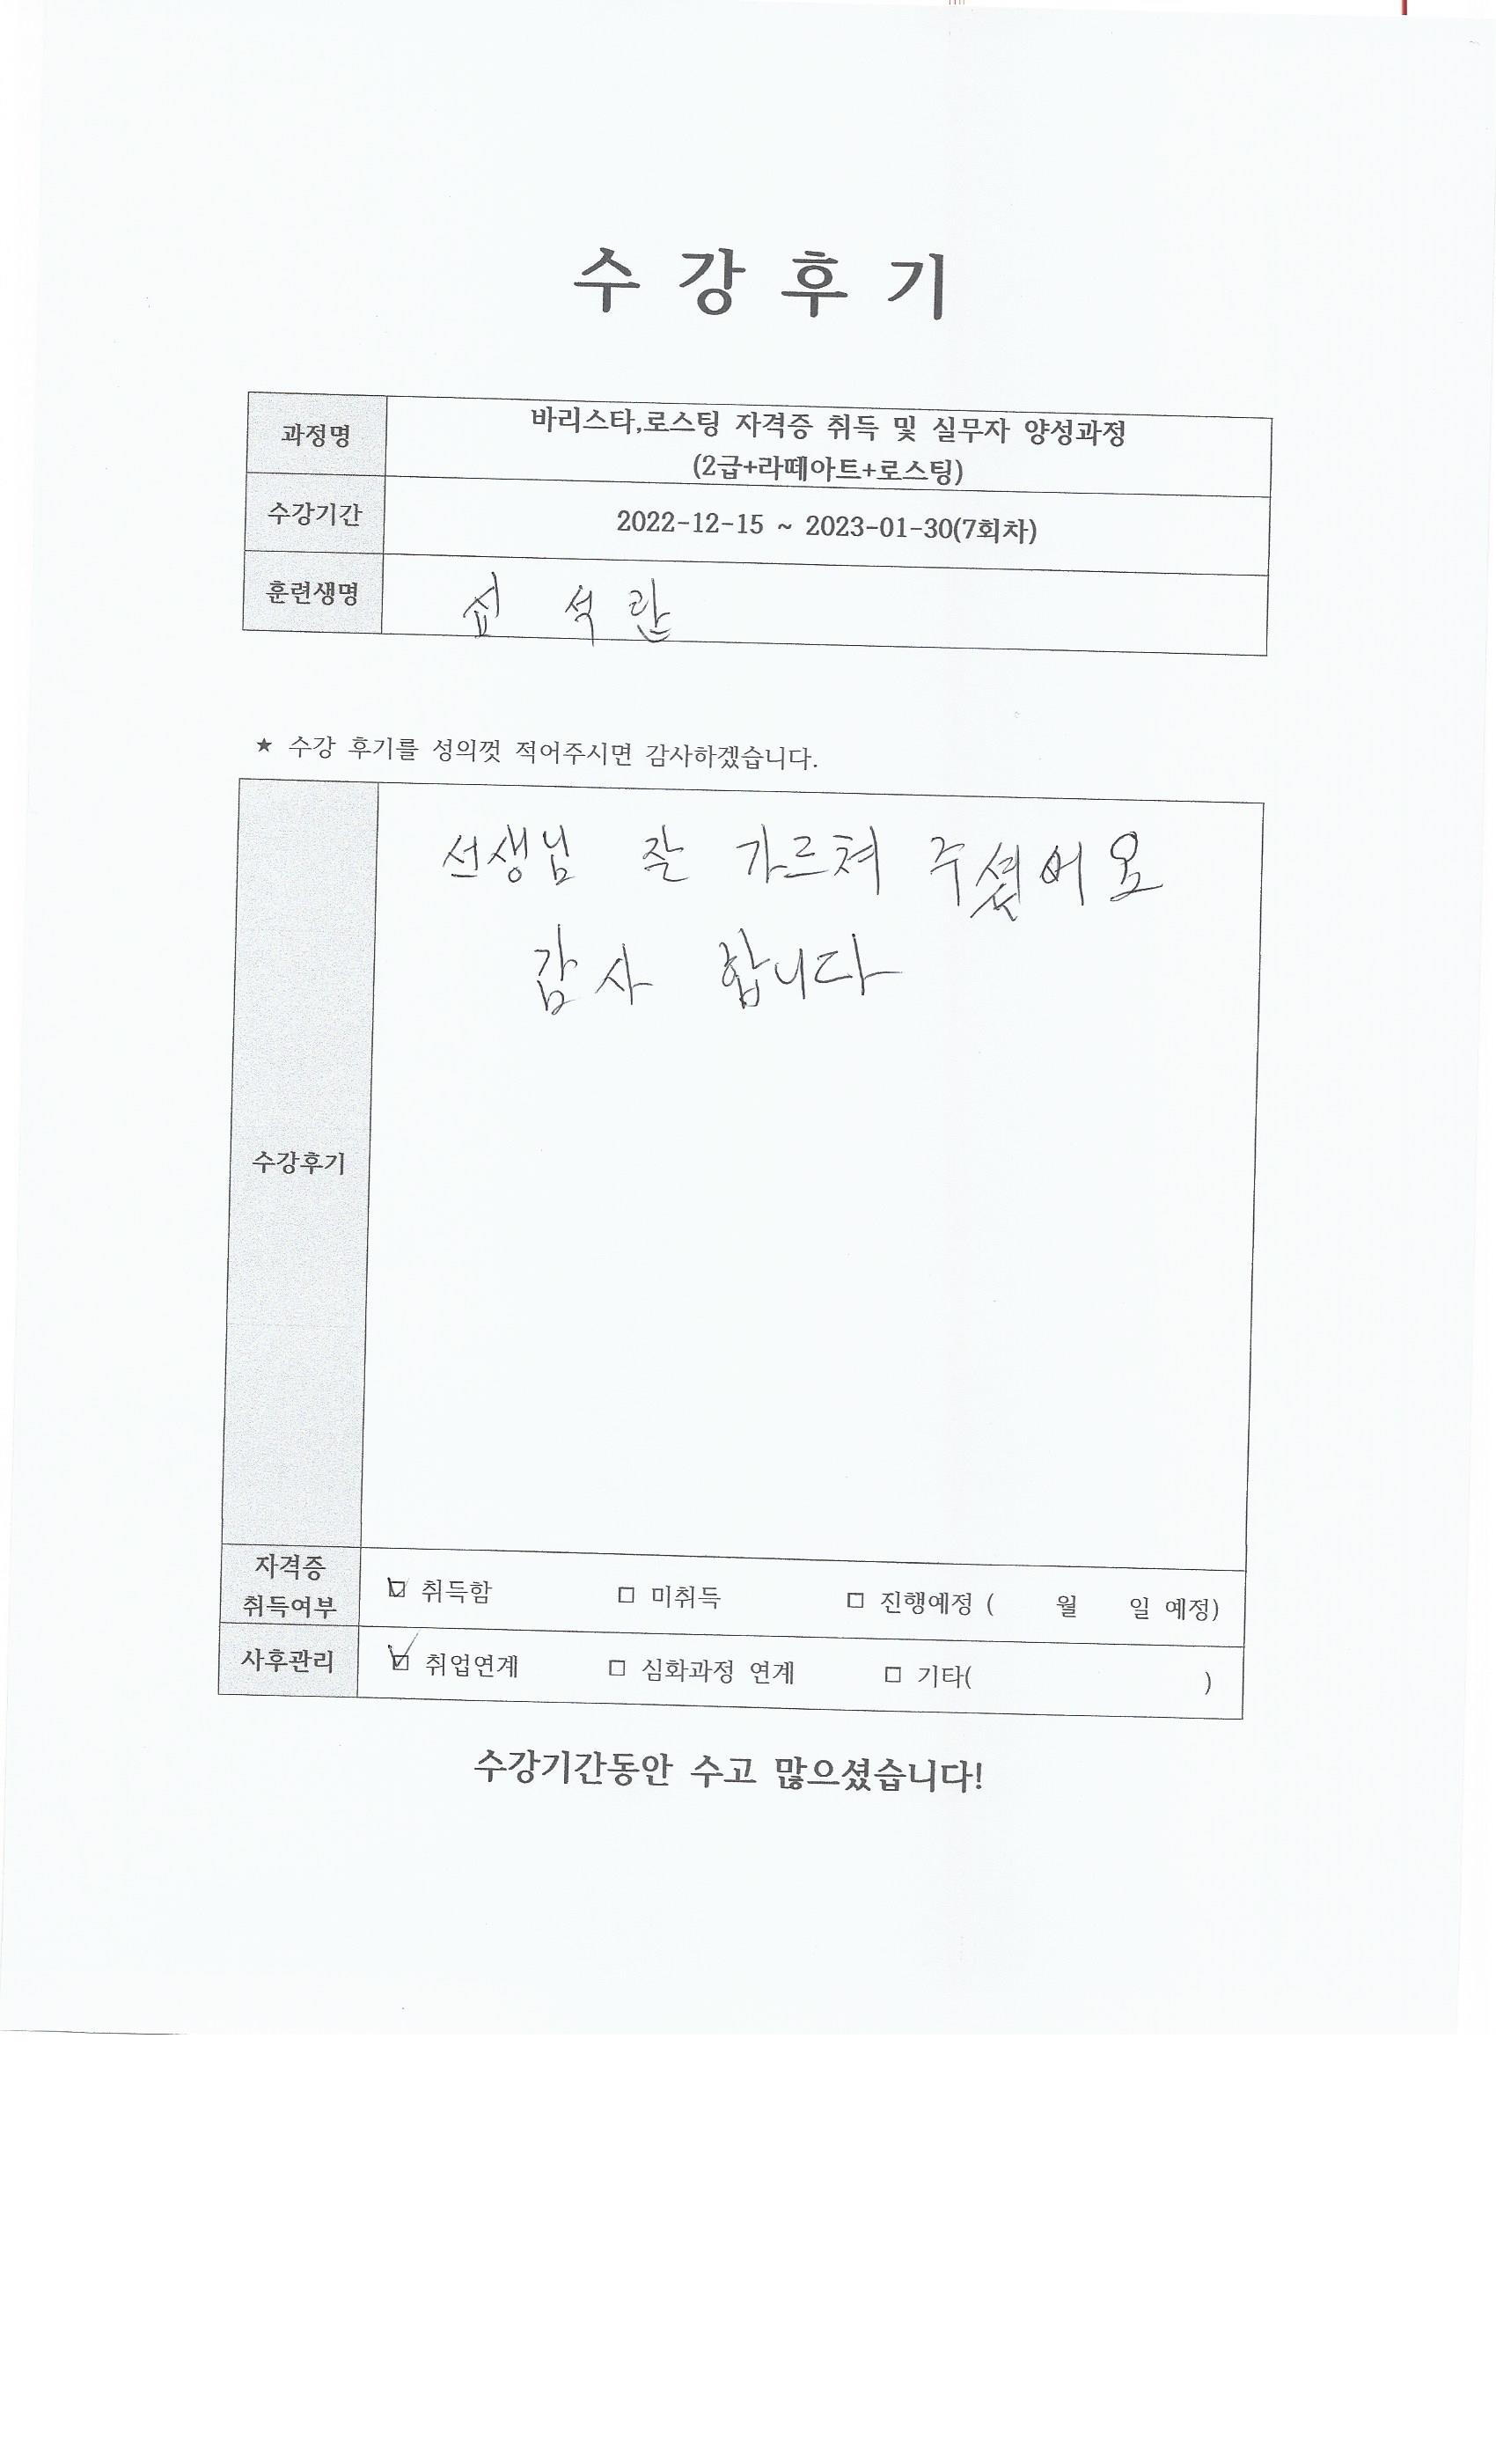 수 강 후 기
과정명
바리스타,로스팅 자격증 취득 및 실무자 양성과정
(2급+라떼아트+로스팅)
수강기간
2022-12-15 ~ 2023-01-30(7회차)
훈련생명
석 란
★ 수강 후기를 성의껏 적어주시면 감사하겠습니다.
수강후기
선생님 잘 가르쳐 주셨어요
감사 합니다
자격증
취득여부
☑ 취득함 □ 미취득 □ 진행예정 ( 월 일 예정)
사후관리
☑ 취업연계 □ 심화과정 연계 □ 기타( )
수강기간동안 수고 많으셨습니다!